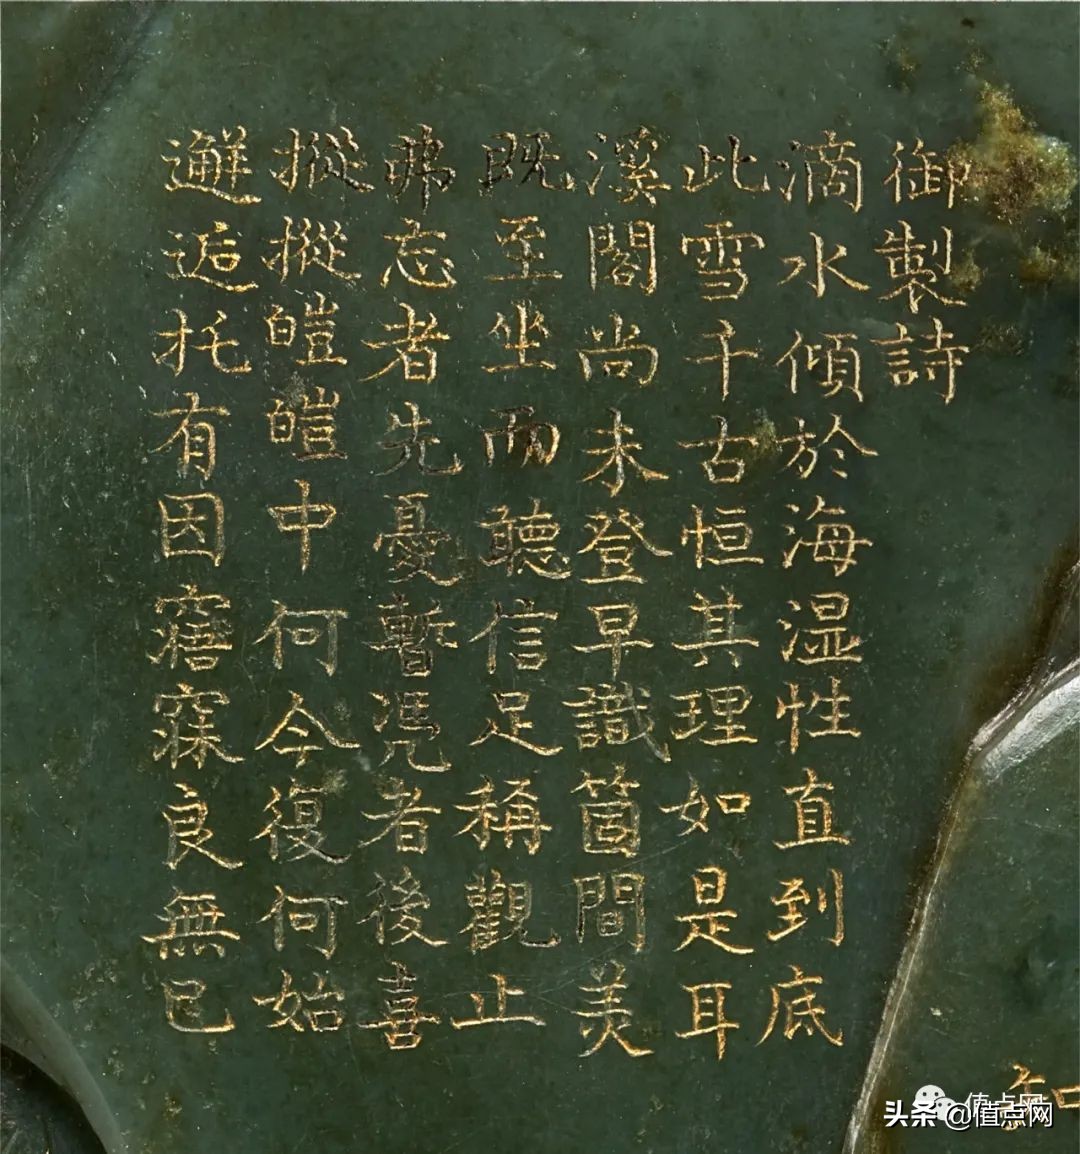 御製詩
滴水傾於海湿性直到底
此雪千古恒其理如是耳
溪閣尚未登早識箇間美
既至坐而聽信足稱觀止
弗忘者先憂暫凴者後喜
摐摐皚皚中何今復何始
邂逅托有因寤寐良無已
知
值点网
头条 @值点网